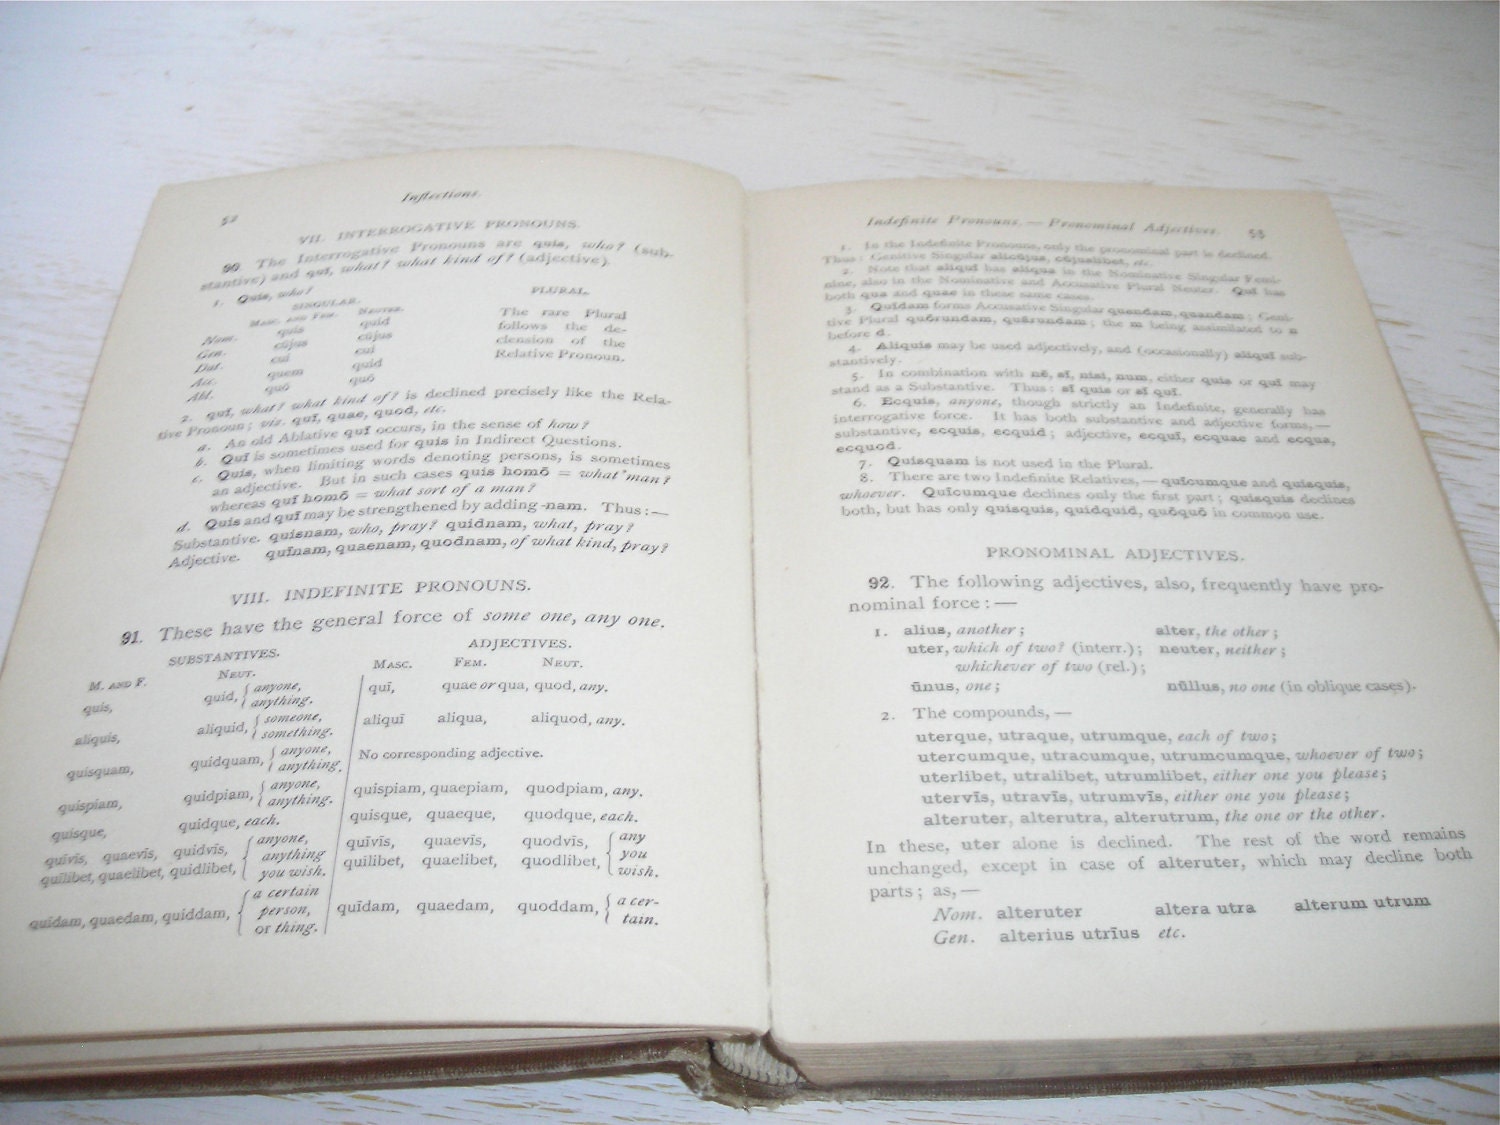 52
Inflections.
VII. INTERROGATIVE PRONOUNS.
90. The Interrogative Pronouns are quis, who? (sub-
stantive) and quī, what? what kind of? (adjective).
1. Quis, who?
SINGULAR. PLURAL.
MASC. AND FEM. NEUTER.
Nom. quis quid The rare Plural
Gen. cūjus cūjus follows the de-
Dat. cui cui clension of the
Acc. quem quid Relative Pronoun.
Abl. quō quō
2. quī, what? what kind of? is declined precisely like the Rela-
tive Pronoun; viz. quī, quae, quod, etc.
a. An old Ablative quī occurs, in the sense of how?
b. Quī is sometimes used for quis in Indirect Questions.
c. Quis, when limiting words denoting persons, is sometimes
an adjective. But in such cases quis homō = what man?
whereas quī homō = what sort of a man?
d. Quis and quī may be strengthened by adding -nam. Thus:—
Substantive. quisnam, who, pray? quidnam, what, pray?
Adjective. quīnam, quaenam, quodnam, of what kind, pray?
VIII. INDEFINITE PRONOUNS.
91. These have the general force of some one, any one.
SUBSTANTIVES. ADJECTIVES.
M. AND F. NEUT. MASC. FEM. NEUT.
quis, quid, { anyone, quī, quae or qua, quod, any.
anything.
aliquis, aliquid, { someone, aliquī aliqua, aliquod, any.
something.
quisquam, quidquam, { anyone, No corresponding adjective.
anything.
quispiam, quidpiam, { anyone, quispiam, quaepiam, quodpiam, any.
anything.
quisque, quidque, each. quisque, quaeque, quodque, each.
quīvīs, quaevīs, quidvīs, { anyone, quīvīs, quaevīs, quodvīs, { any
anything you
quīlibet, quaelibet, quidlibet, you wish. quīlibet, quaelibet, quodlibet, wish.
quīdam, quaedam, quiddam, { a certain quīdam, quaedam, quoddam, { a cer-
person, tain.
or thing.
Indefinite Pronouns.—Pronominal Adjectives. 53
1. In the Indefinite Pronouns, only the pronominal part is declined.
Thus: Genitive Singular alicūjus, cūjuslibet, etc.
2. Note that aliquī has aliqua in the Nominative Singular Femi-
nine, also in the Nominative and Accusative Plural Neuter. Quī has
both qua and quae in these same cases.
3. Quīdam forms Accusative Singular quendam, quandam; Geni-
tive Plural quōrundam, quārundam; the m being assimilated to n
before d.
4. Aliquis may be used adjectively, and (occasionally) aliquī sub-
stantively.
5. In combination with nē, sī, nisi, num, either quis or quī may
stand as a Substantive. Thus: sī quis or sī quī.
6. Ecquis, anyone, though strictly an Indefinite, generally has
interrogative force. It has both substantive and adjective forms,—
substantive, ecquis, ecquid; adjective, ecquī, ecquae and ecqua,
ecquod.
7. Quisquam is not used in the Plural.
8. There are two Indefinite Relatives,—quīcumque and quisquis,
whoever. Quīcumque declines only the first part; quisquis declines
both, but has only quisquis, quidquid, quōquō in common use.
PRONOMINAL ADJECTIVES.
92. The following adjectives, also, frequently have pro-
nominal force:—
1. alius, another; alter, the other;
uter, which of two? (interr.); neuter, neither;
whichever of two (rel.);
ūnus, one; nūllus, no one (in oblique cases).
2. The compounds,—
uterque, utraque, utrumque, each of two;
utercumque, utracumque, utrumcumque, whoever of two;
uterlibet, utralibet, utrumlibet, either one you please;
utervīs, utravīs, utrumvīs, either one you please;
alteruter, alterutra, alterutrum, the one or the other.
In these, uter alone is declined. The rest of the word remains
unchanged, except in case of alteruter, which may decline both
parts; as,—
Nom. alteruter altera utra alterum utrum
Gen. alterius utrīus etc.